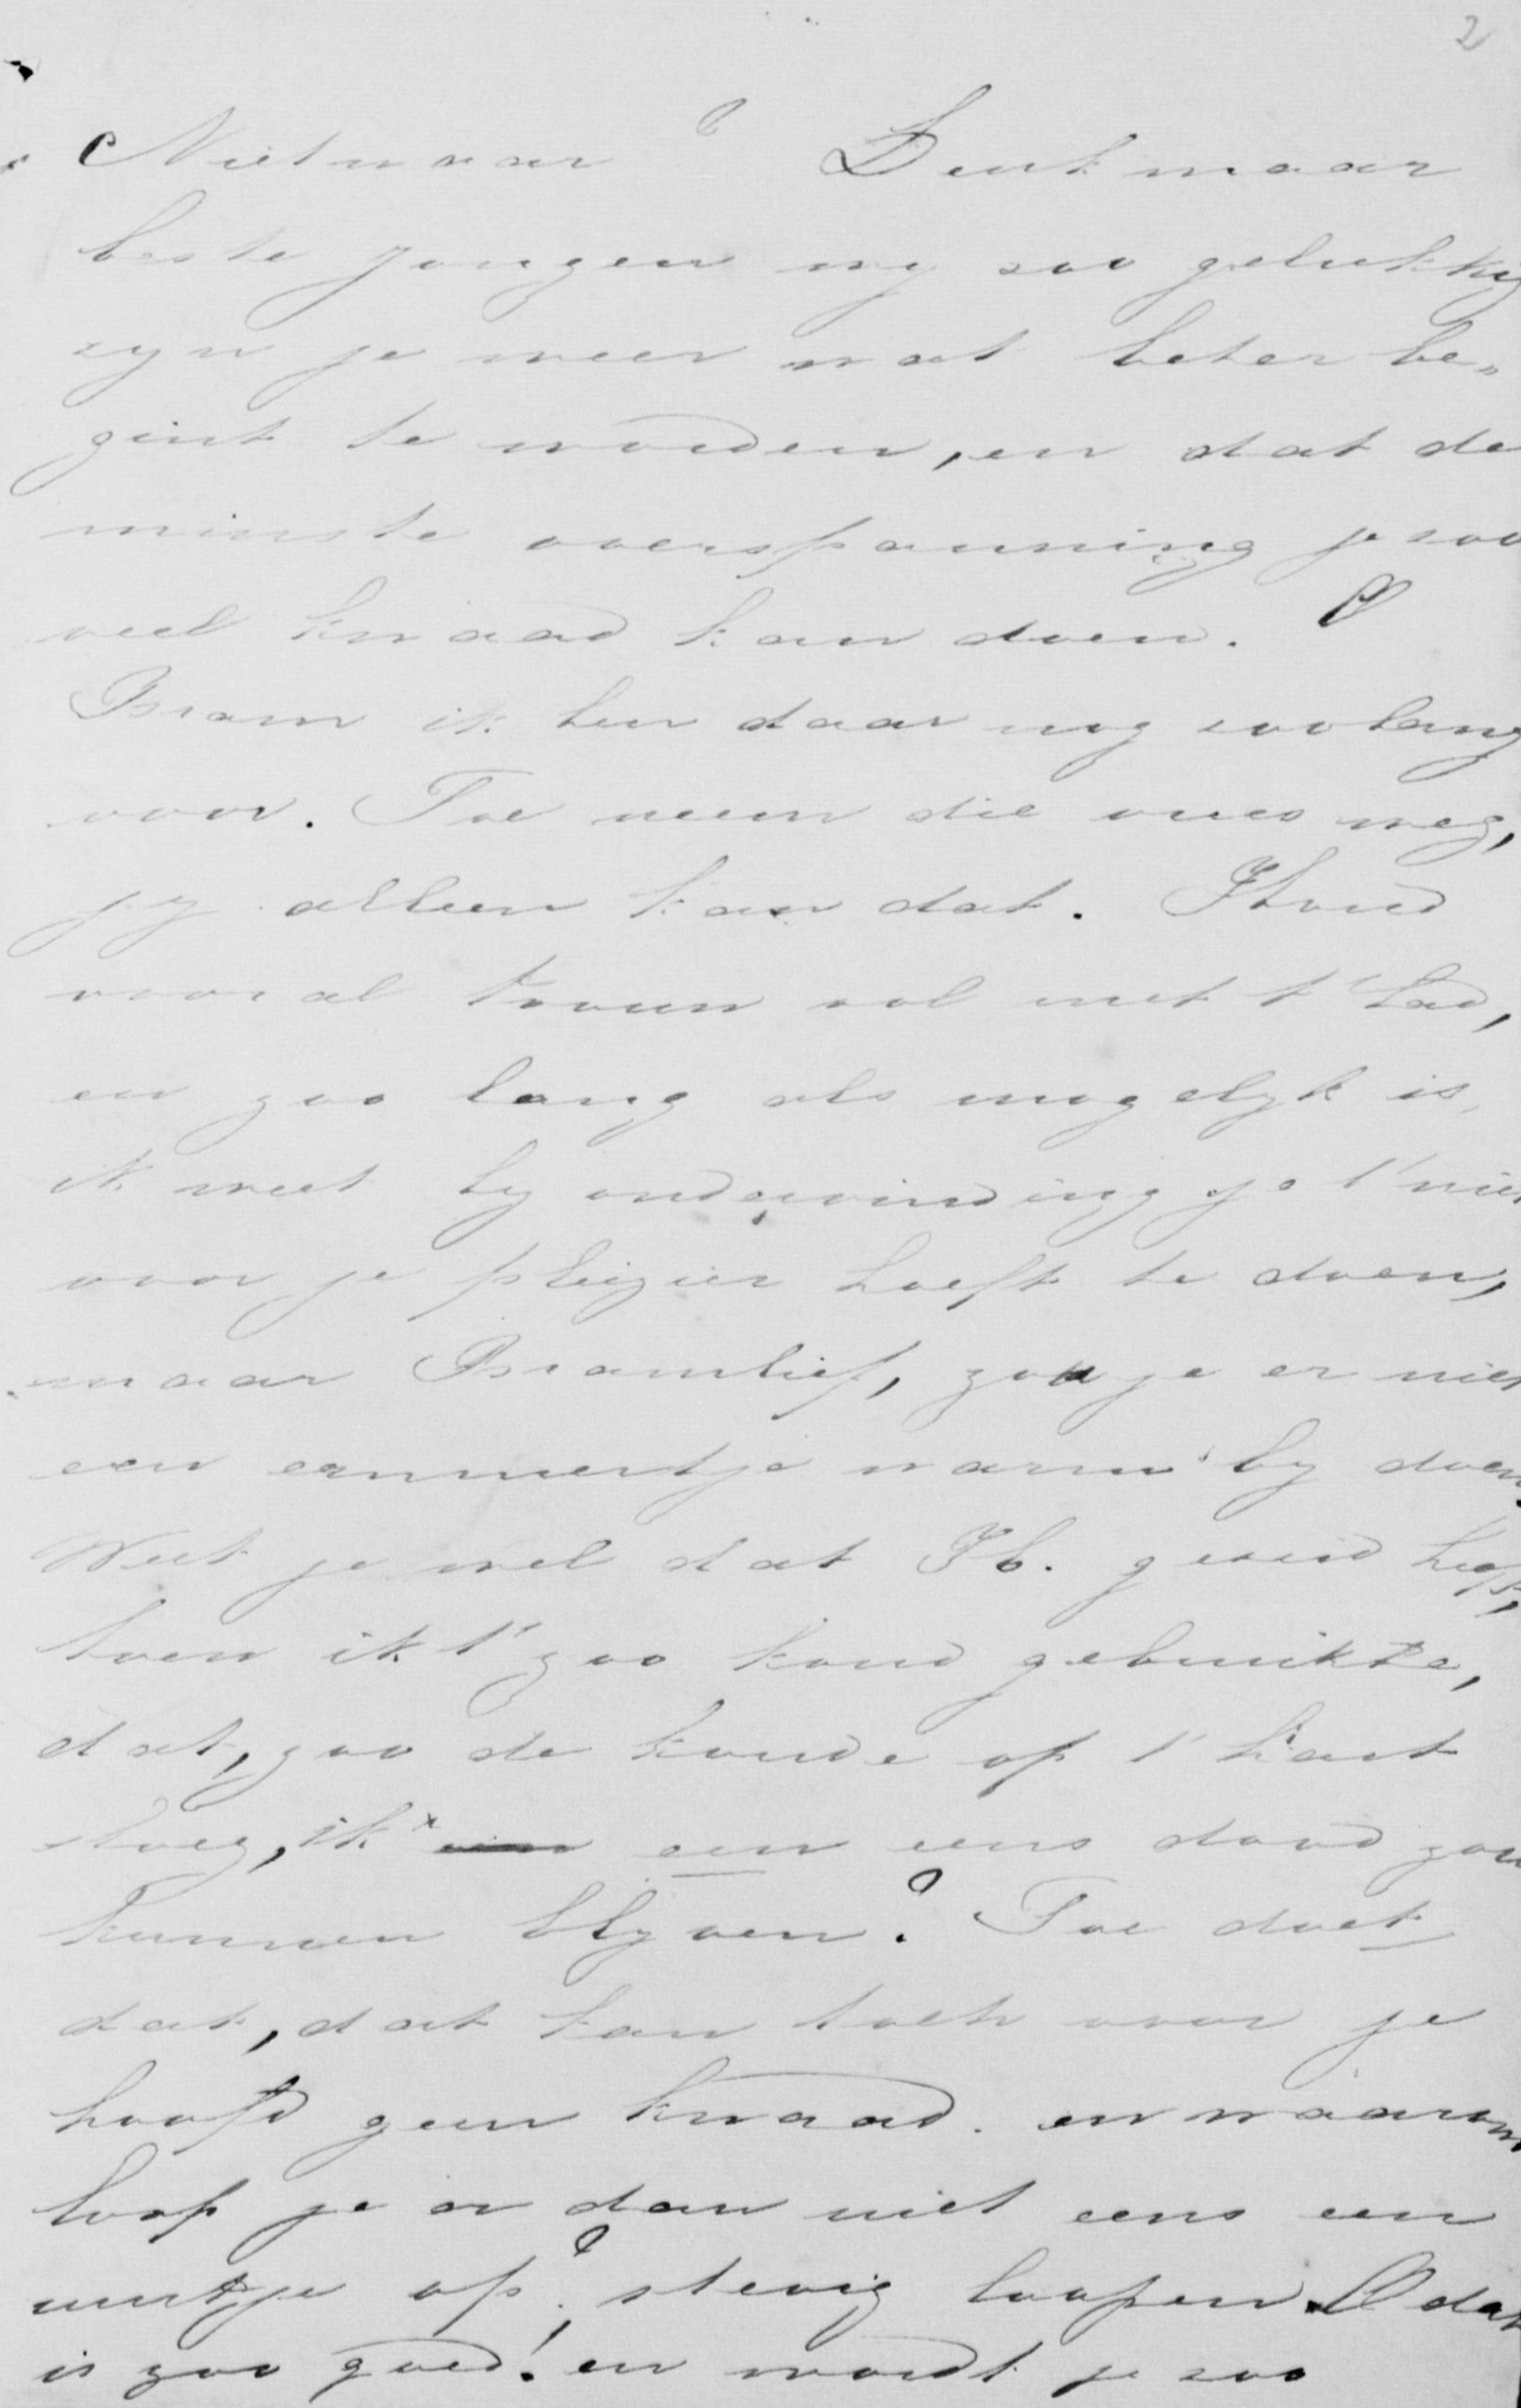 2
Niet waar? Denk maar
beste jongen wy zoo gelukkig
zyn je weer wat beter be„
gint te worden, en dat de
minste overspanning je zoo
veel kwaad kan doen. O
Bram ik ben daar nog zoo bang
voor. Toe neem die vrees weg,
jy alleen kan dat. Houd
vooral trouw vol met t' bad,
en zoo lang als mogelyk is,
ik weet by ondervinding je t' niet
voor je pleizier hoeft te doen,
maar Bramlief, zou je er niet
een emmertje warm by doen.
Weet je wel dat H. gezeid heeft,
toen ik t' zoo koud gebruikte,
dat, zoo de koude op t' hart
sloeg, ik er een eens dood zou
kunnen blyven? Toe doet
dat, dat kan toch voor je
hoofd geen kwaad. en waarom
loop je er dan niet eens een
uurtje op? stevig loopen. O dat
is zoo goed! en wordt je zoo